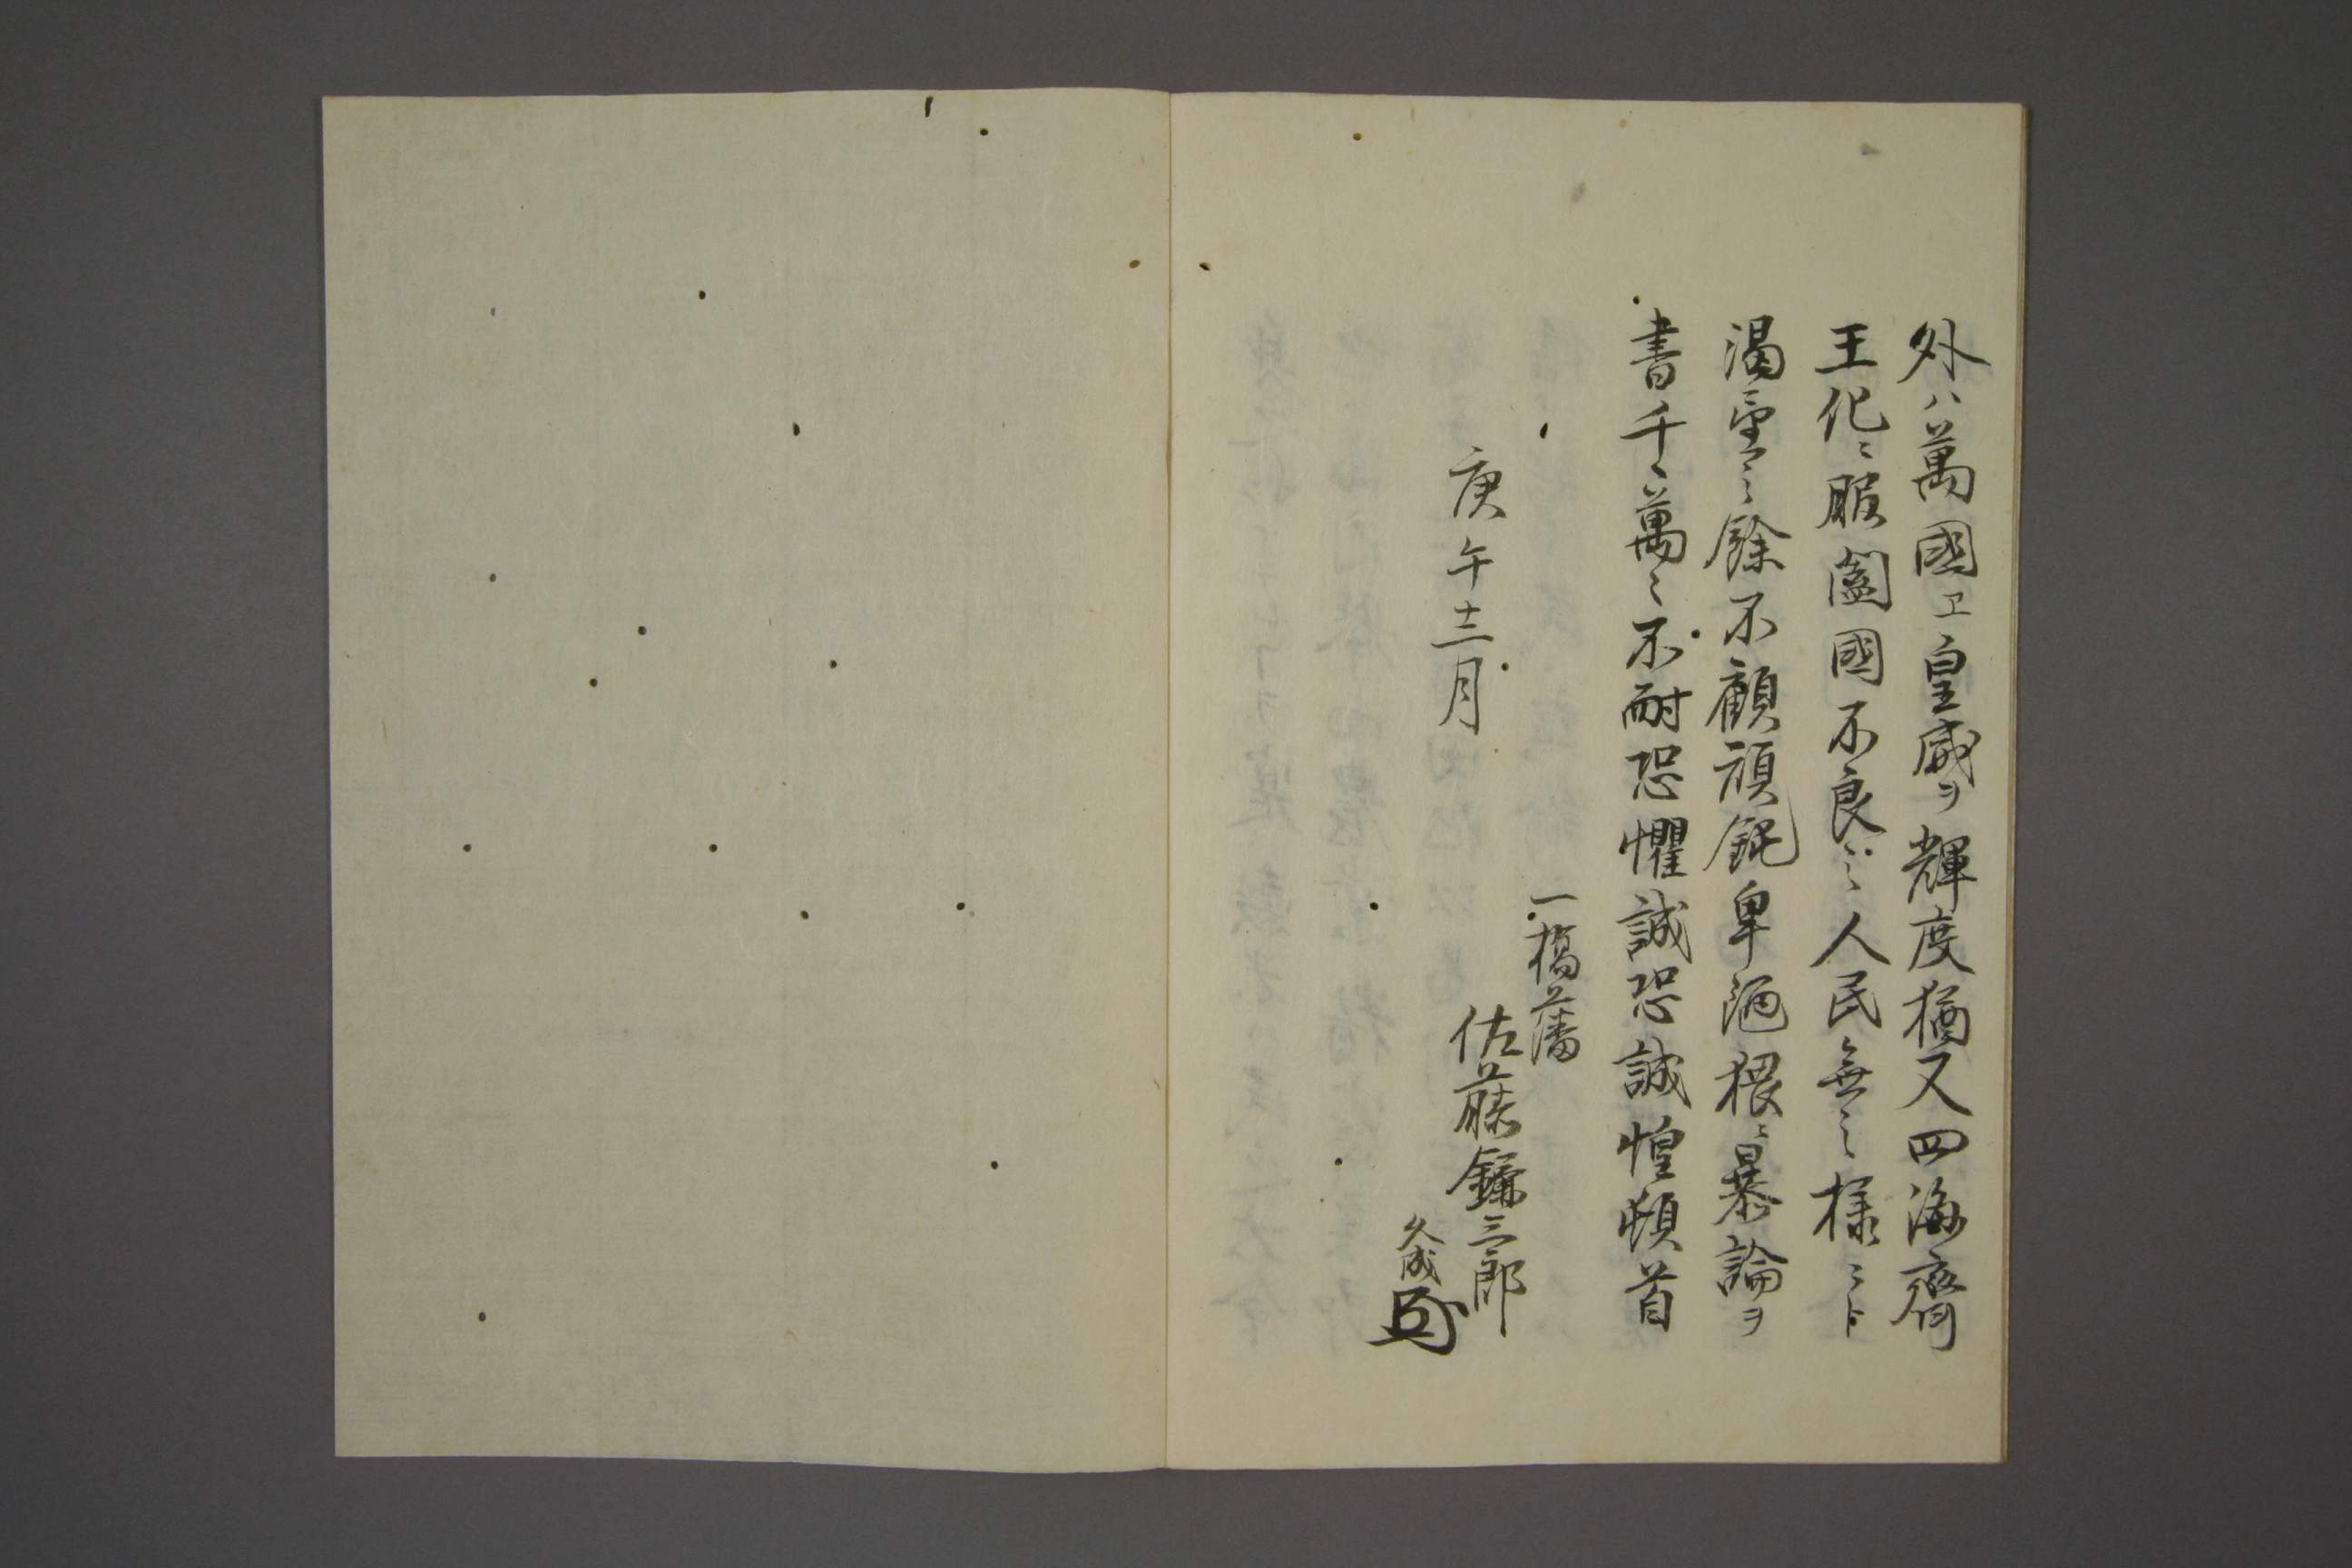 外ハ萬國ヱ皇威ヲ輝度猶又四海齊
王化ニ服闔國不良之人民無之様ニト
渇望之餘不顧頑鈍卑陋猥ニ暴論ヲ
書千々萬々不耐恐懼誠恐誠惶頓首
庚午十二月
一橋藩
佐藤鏞三郎
久成